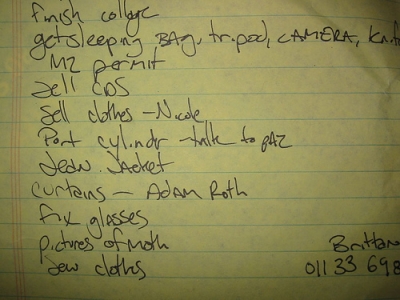 finish collage
get sleeping BAg, tripod, CAMERA, kn
M2 permit
Sell CDS
Sell clothes - Nicole
Port cylindr - talk to PAZ
Jean Jacket
curtains - ADAM Roth
fix glasses
pictures of moth
Sew cloths
Brittan
011 33 698